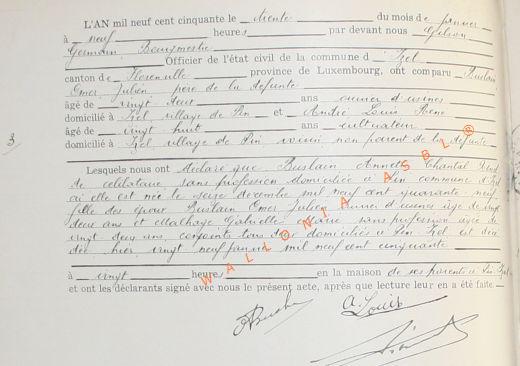 L'AN mil neuf cent cinquante le trente du mois de janvier
à neuf heures par devant nous Gilson
Germain Bourgmestre
Officier de l'état civil de la commune d' Izel
canton de Florenville province de Luxembourg, ont comparu Bustain
Emer Julien père de la défunte
âgé de vingt deux ans ouvrier d'usines
domicilié à Izel village de Pin et André Louis René
âgé de vingt huit ans cultivateur
domicilié à Izel village de Pin voisin non parent de la défunte
3
Lesquels nous ont déclaré que Bustain Annette Chantal
de célibataire sans profession domiciliée à Pin commune d'Izel
où elle est née le seize décembre mil neuf cent quarante neuf
fille des époux Bustain Emer Julien ouvrier d'usines âgé de vingt
deux ans et Gabrielle Marie sans profession âgée de
vingt deux ans, conjoints tous deux domiciliés à Pin Izel est décé
dée hier, vingt neuf janvier mil neuf cent cinquante
à vingt heures en la maison de ses parents à Pin Izel
et ont les déclarants signé avec nous le présent acte, après que lecture leur en a été faite.
A. Louis
WALLONIA ASBL ®